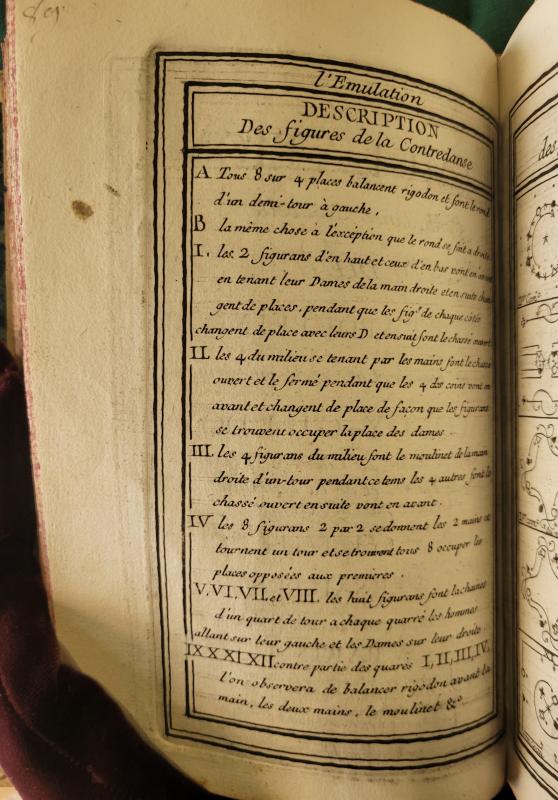 l'Emulation
DESCRIPTION
Des figures de la Contredanse
A Tous 8 sur 4 places balancent rigodon et font le rond
d'un demi-tour à gauche,
B la même chose à l'exception que le rond se fait a droite
I. les 2 figurans d'en haut et ceux d'en bas vont en avant
en tenant leur Dames de la main droite et en suite chan
gent de places, pendant que les fig.s de chaque côtés
changent de place avec leurs D et ensuit font le chassé ouvert
II. les 4 du milieu se tenant par les mains font le chassé
ouvert et le fermé pendant que les 4 des coins vont en
avant et changent de place de facon que les figurans
se trouvent occuper la place des dames
III. les 4 figurans du milieu font le moulinet de la main
droite d'un-tour pendant ce tems les 4 autres font le
chassé ouvert en suite vont en avant.
IV les 8 figurans 2 par 2 se donnent les 2 mains et
tournent un tour et se trouvent tous 8 occuper les
places opposées aux premieres.
V, VI, VII, et VIII. les huit figurans font la chaine
d'un quart de tour a chaque quarré les hommes
allant sur leur gauche et les Dames sur leur droite
IX X XI XII contre partie des quarés I, II, III, IV,
l'on observera de balancer rigodon avant la
main, les deux mains, le moulinet &c.
des